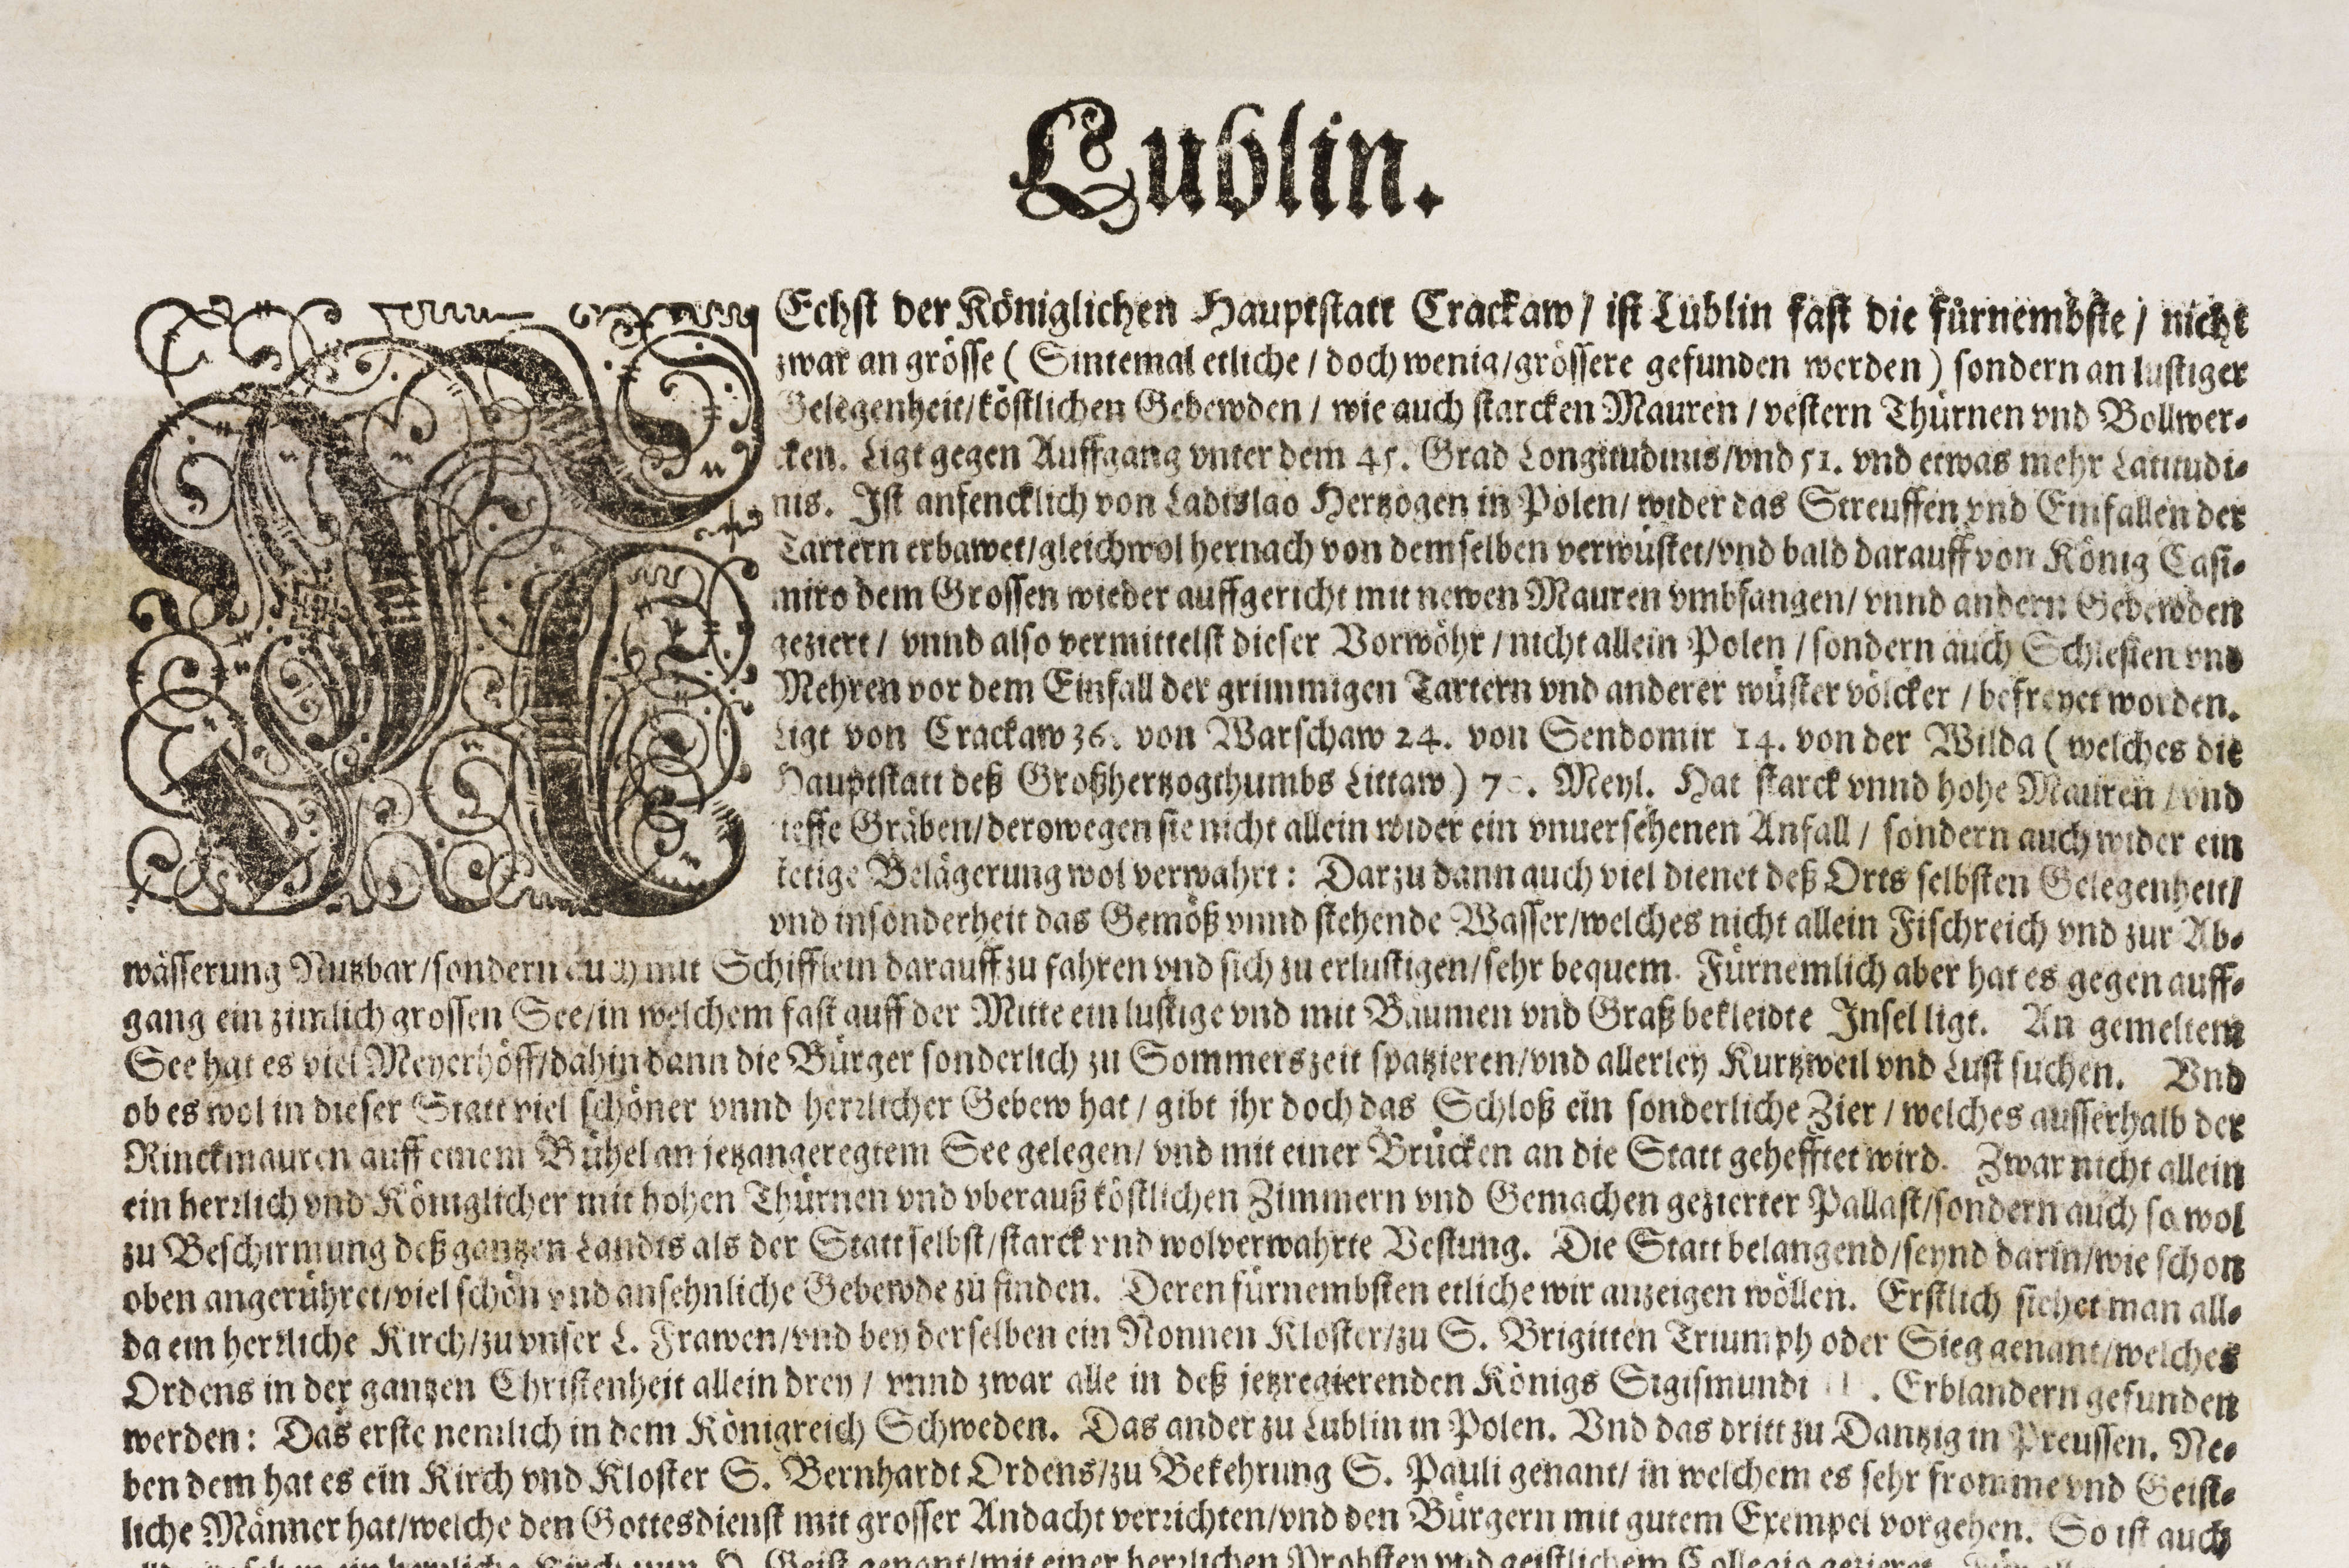 Lublin.
NEchst der Königlichen Hauptstatt Crackaw / ist Lublin fast die fürnembste / nicht
zwar an grösse ( Sintemal etliche / doch wenig/grössere gefunden werden ) sondern an lustiger
Gelegenheit/köstlichen Gebewden / wie auch starcken Mauren / vestern Thürnen vnd Bollwer-
cken. Ligt gegen Auffgang vnter dem 45. Grad Longitudinis/vnd 51. vnd etwas mehr Latitudi-
nis. Ist anfencklich von Ladislao Hertzogen in Polen/ wider das Streuffen vnd Einfallen der
Tartern erbawet/gleichwol hernach von demselben verwüstet/vnd bald darauff von König Casi-
miro dem Grossen wieder auffgericht mit newen Mauren vmbfangen/ vnnd andern Gebewden
geziert / vnnd also vermittelst dieser Vorwöhr / nicht allein Polen / sondern auch Schlesien vnd
Mehren vor dem Einfall der grimmigen Tartern vnd anderer wüster völcker / befreyet worden.
Ligt von Crackaw 36. von Warschaw 24. von Sendomir 14. von der Wilda ( welches die
Hauptstatt deß Großhertzogthumbs Littaw ) Meyl. Hat starck vnnd hohe Mauren / vnd
tieffe Gräben/derowegen sie nicht allein wider ein vnuersehenen Anfall / sondern auch wider ein
Belägerung wol verwahrt : Darzu dann auch viel dienet deß Orts selbsten Gelegenheit/
vnd insonderheit das Gemöß vnnd stehende Wasser/welches nicht allein Fischreich vnd zur Ab-
wässerung Nutzbar/sondern auch mit Schifflein darauff zu fahren vnd sich zu erlustigen/sehr bequem. Fürnemlich aber hat es gegen auff-
gang ein zimlich grossen See/in welchem fast auff der Mitte ein lustige vnd mit Bäumen vnd Graß bekleidte Insel ligt. An gemeltem
See hat es viel Meyerhöff/dahin dann die Bürger sonderlich zu Sommerszeit spatzieren/vnd allerley Kurtzweil vnd Lust suchen. Vnd
ob es wol in dieser Statt viel schöner vnnd herrlicher Gebew hat / gibt jhr doch das Schloß ein sonderliche Zier / welches ausserhalb der
Rinckmauren auff einem Bühel an jetzangeregtem See gelegen/ vnd mit einer Brücken an die Statt gehefftet wird. Zwar nicht allein
ein herrlich vnd Königlicher mit hohen Thürnen vnd vberauß köstlichen Zimmern vnd Gemachen gezierter Pallast/sondern auch so wol
zu Beschirmung deß gantzen Landts als der Statt selbst/starck vnd wolverwahrte Vestung. Die Statt belangend/seynd darin/wie schon
oben angerühret/viel schön vnd ansehnliche Gebewde zu finden. Deren fürnembsten etliche wir anzeigen wöllen. Erstlich siehet man all-
da ein herrliche Kirch/zu vnser L. Frawen/vnd bey derselben ein Nonnen Kloster/zu S. Brigitten Triumph oder Sieg genant/welches
Ordens in der gantzen Christenheit allein drey / vnnd zwar alle in deß jetzregierenden Königs Sigismundi . Erblandern gefunden
werden : Das erste nemlich in dem Königreich Schweden. Das ander zu Lublin in Polen. Vnd das dritt zu Dantzig in Preussen. Ne-
ben dem hat es ein Kirch vnd Kloster S. Bernhardt Ordens/zu Bekehrung S. Pauli genant/ in welchem es sehr fromme vnd Geist-
liche Männer hat/welche den Gottesdienst mit grosser Andacht verrichten/vnd den Bürgern mit gutem Exempel vorgehen. So ist auch
ein herrliche Kirch zum H. Geist genant/mit einer herrlichen Probstey vnd geistlichem Collegio gezieret.